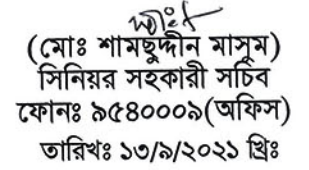 (মোঃ শামছুদ্দীন মাসুম)
সিনিয়র সহকারী সচিব
ফোনঃ ৯৫৪০০০৯(অফিস)
তারিখঃ ১৩/৯/২০২১ খ্রিঃ